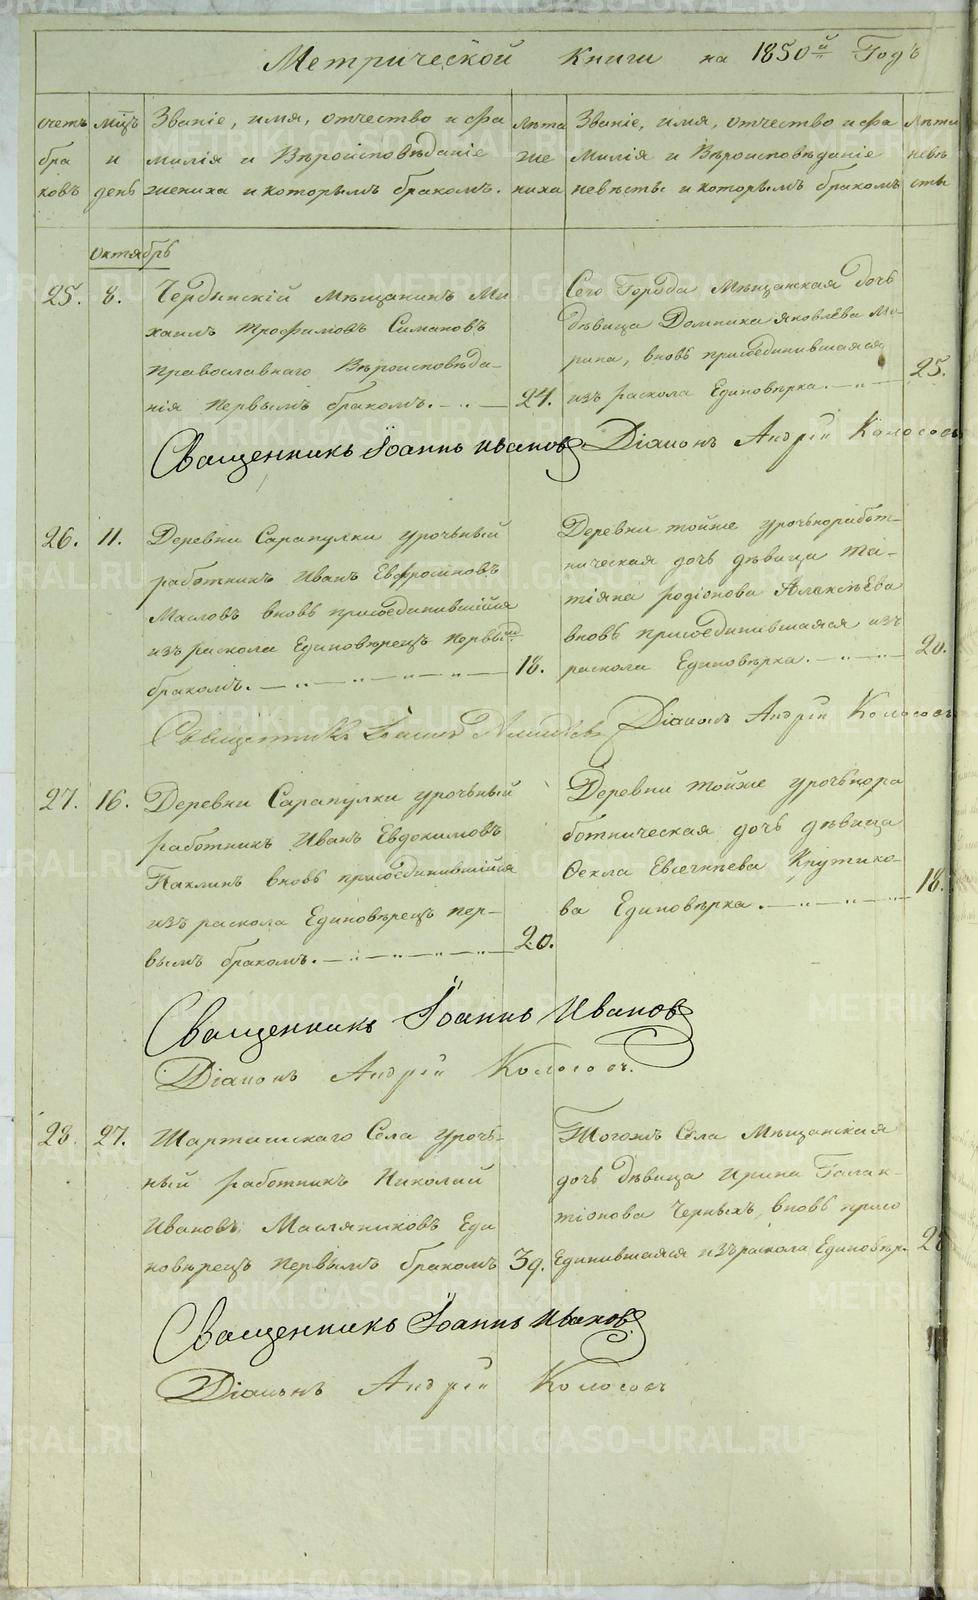 Метрической Книги на 1850й Годъ
счетъ бра ковъ
мцъ и день
Званіе, имя, отчество и фа
милія и Вѣроисповѣданіе
жениха и которымъ бракомъ.
Лѣта же ниха
Званіе, имя, отчество и фа
милія и Вѣроисповѣданіе
невѣсты и которымъ бракомъ
Лѣта невѣ сты
Октябрь
25. 8. Чердынскій Мѣщанинъ Ми
хаилъ Трофимовъ Симановъ
Православнаго Вѣроисповѣда-
нія первымъ бракомъ. 24.
Сего Города Мѣщанская дочь
дѣвица Домника Яковлева Ма-
рина, вновь присоединившаяся
изъ раскола Единовѣрка. 25.
Священникъ Іоаннъ Ивановъ Діаконъ Андрей Колосовъ
26. 11. Деревни Сарапулки урочьный
работникъ Иванъ Евфроимовъ
Масловъ вновь присоединившійся
изъ раскола Единовѣрецъ первым
бракомъ. 18.
Деревни тойже урочьноработ-
ническая дочь дѣвица Та-
тіяна родіонова Алексѣева
вновь присоединившаяся изъ
раскола Единовѣрка. 20.
Священникъ Діаконъ Андрей Колосовъ
27. 16. Деревни Сарапулки урочьный
работникъ Иванъ Евдокимовъ
Паклинъ вновь присоединившійся
изъ раскола Единовѣрецъ пер-
вымъ бракомъ. 20.
Деревни тойже урочьнора
ботническая дочь дѣвица
Фекла Евсечнѣева Крутико-
ва Единовѣрка. 18.
Священникъ Іоаннъ Ивановъ
Діаконъ Андрей Колосовъ.
28. 27. Шарташскаго Села урочь-
ный работникъ Николай
Ивановъ Масляниковъ Еди
новѣрецъ первымъ бракомъ 39.
Тогожъ Села Мѣщанская
дочь дѣвица Ирина Галак-
тіонова Черныхъ, вновь присо
Единившаяся изъ раскола Единовѣр.
Священникъ Іоаннъ Ивановъ
Діаконъ Андрей Колосовъ
METRIKI.GASO-URAL.RU